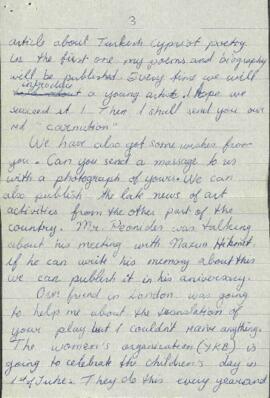 3
article about Turkish cypriot poetry
in the first one my poems and biography
will be published. Every time we will
introduce
a young artist. I hope we
succeed it!. Then I shall send you our
red "carnation"
We have also got some wishes from
you. Can you send a message to us
with a photograph of yours. We can
also publish the late news of art
activities from the other part of the
country. Mr. Peonides was talking
about his meeting with Nazım Hikmet.
if he can write his memory about this
we can publish it in his aniversary.
Our friend in London was going
to help me about the translation of
your play but I couldn't have anything.
The women's organization (YKB) is
going to celebrate the children's day in
1st of June. They do this every year and